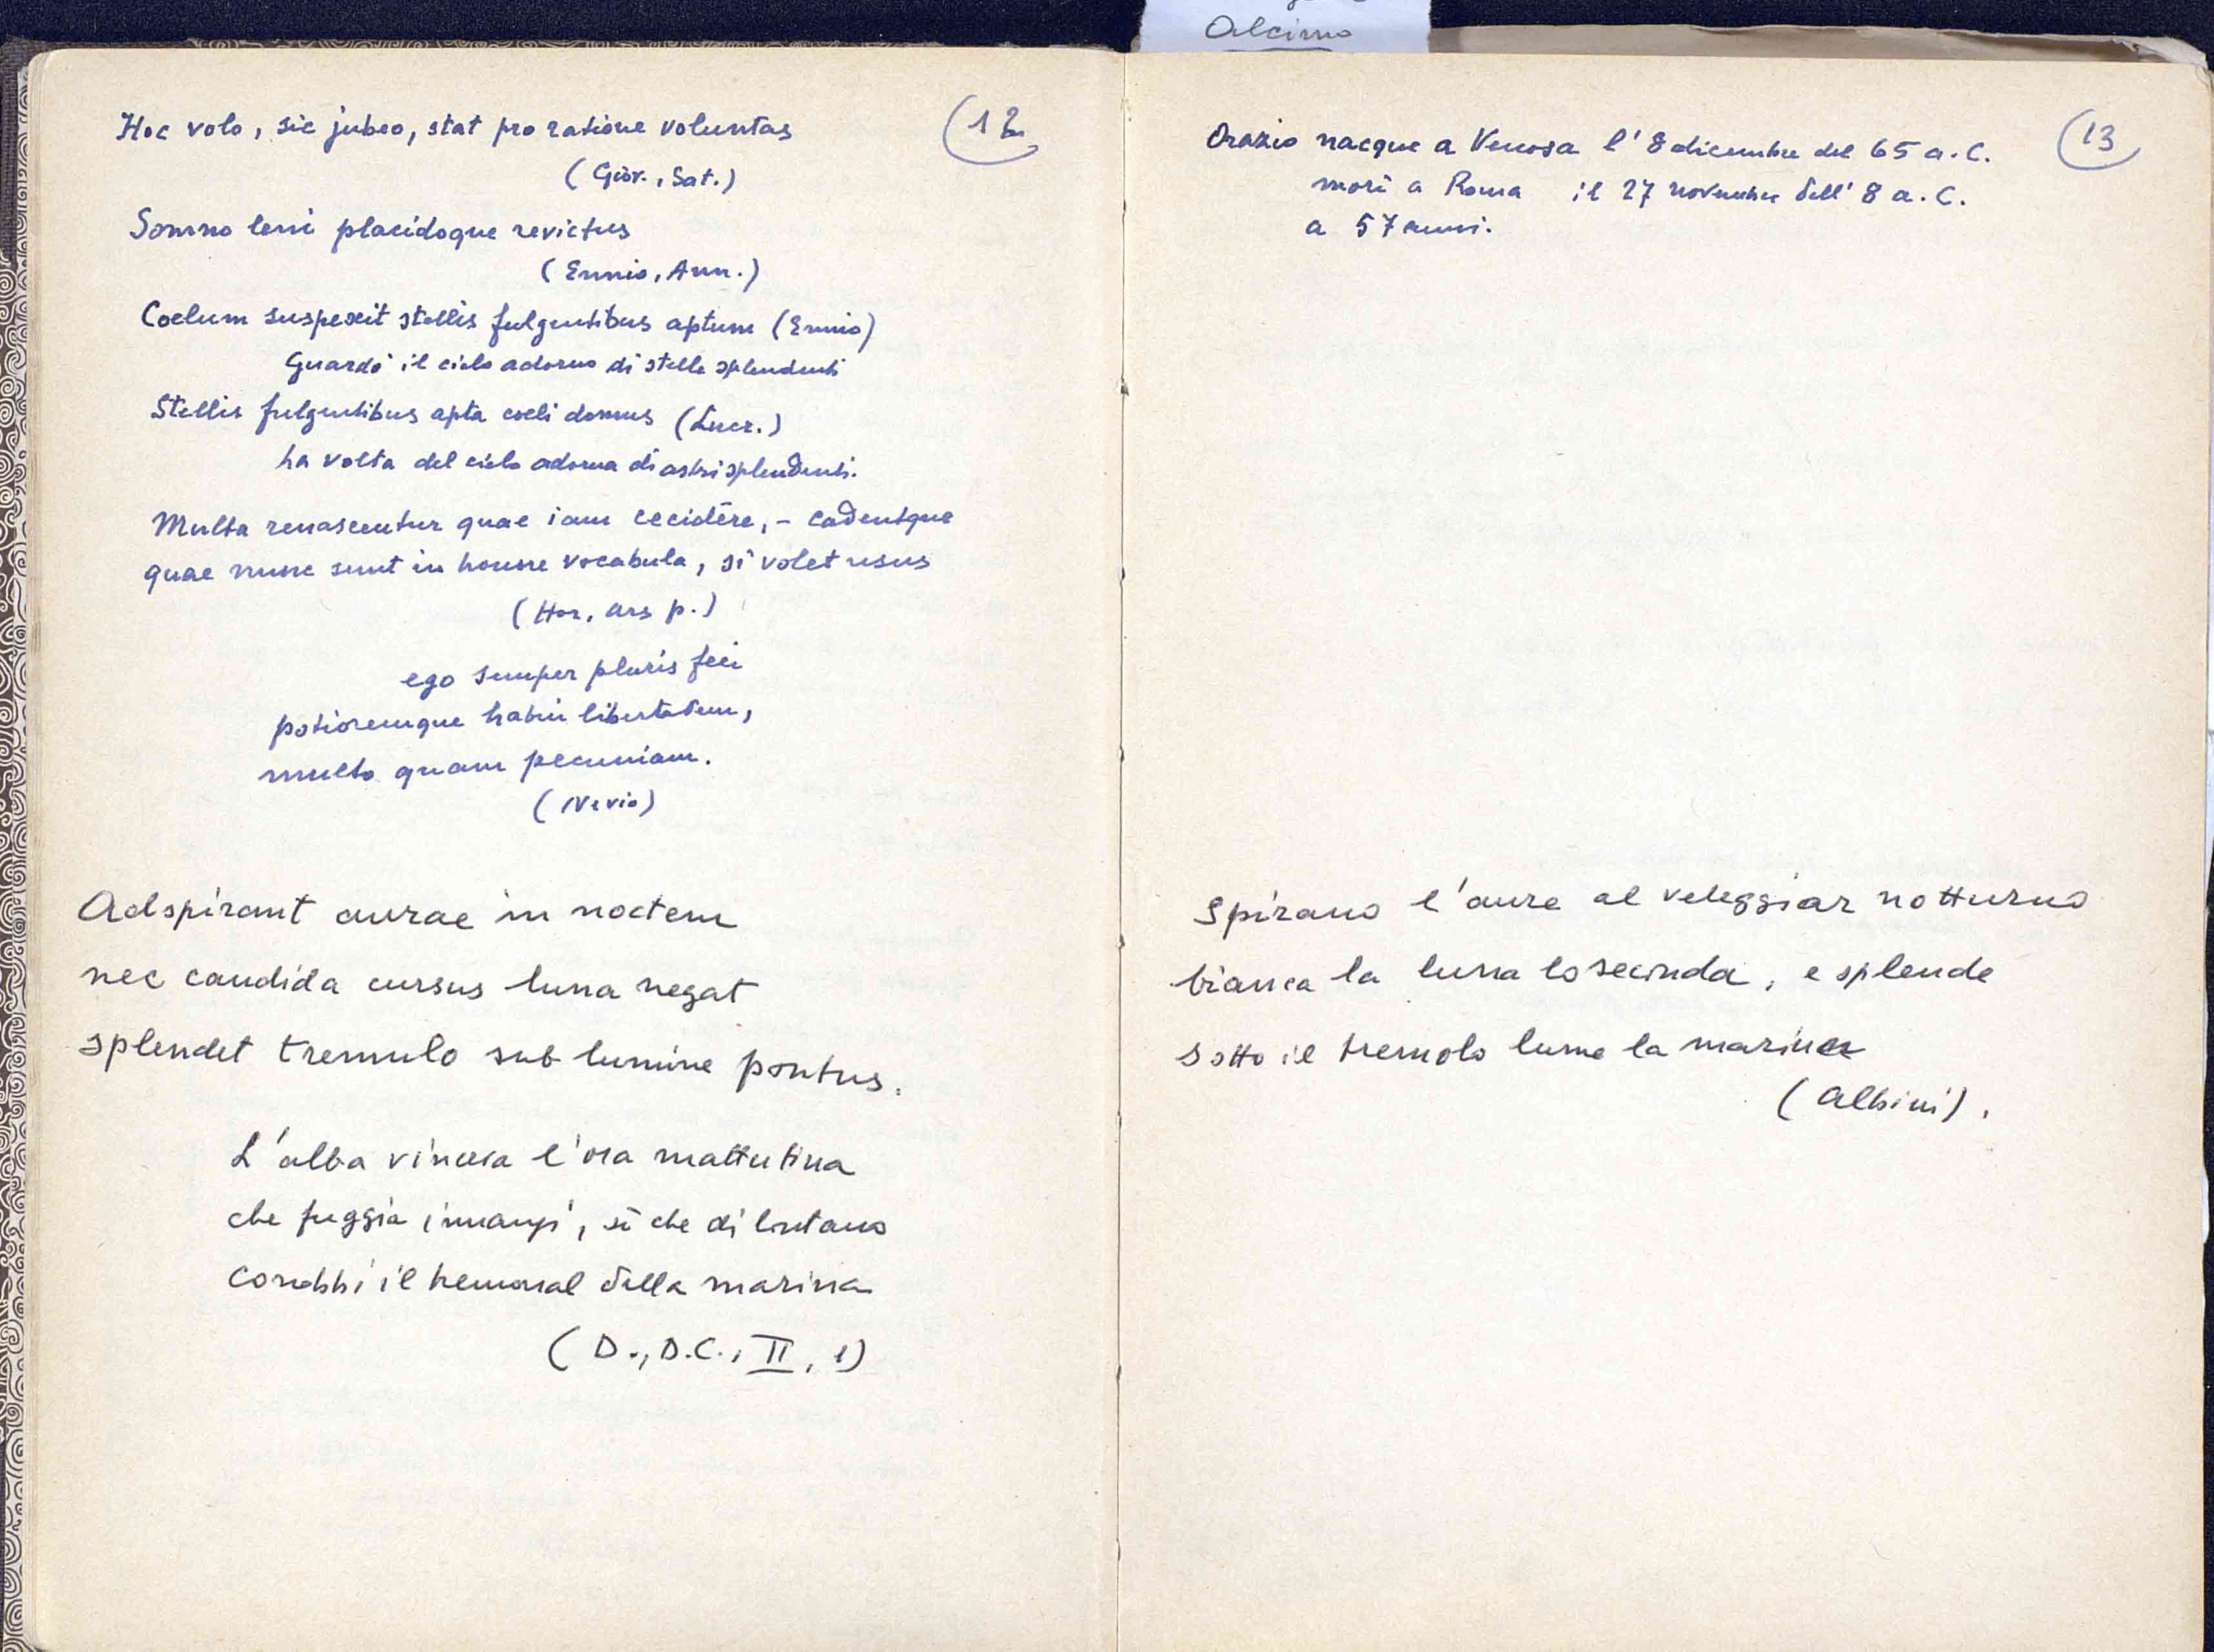 Alcimo
12
Hoc volo, sic jubeo, stat pro ratione voluntas
(Giov., Sat.)
Somno leni placidoque revictus
(Ennio, Ann.)
Coelum suspexit stellis fulgentibus aptum (Ennio)
Guardò il cielo adorno di stelle splendenti
Stellis fulgentibus apta coeli domus (Lucr.)
La volta del cielo adorna di astri splendenti.
Multa renascentur quae iam cecidēre, - cadentque
quae nunc sunt in honore vocabula, si volet usus
(Hor, ars p.)
ego semper pluris feci
potioremque habui libertatem,
multo quam pecuniam.
(Nevio)
Adspirant aurae in noctem
nec candida cursus luna negat
splendet tremulo sub lumine pontus.
L'alba vinceva l'ora mattutina
che fuggia innanzi, sì che di lontano
conobbi il tremolar della marina
(D., D.C., II, 1)
13
Orazio nacque a Venosa l'8 dicembre del 65 a.C.
morì a Roma il 27 novembre dell'8 a.C.
a 57 anni.
Spirano l'aure al veleggiar notturno
bianca la luna lo seconda, e splende
sotto il tremolo lume la marina
(Albini).